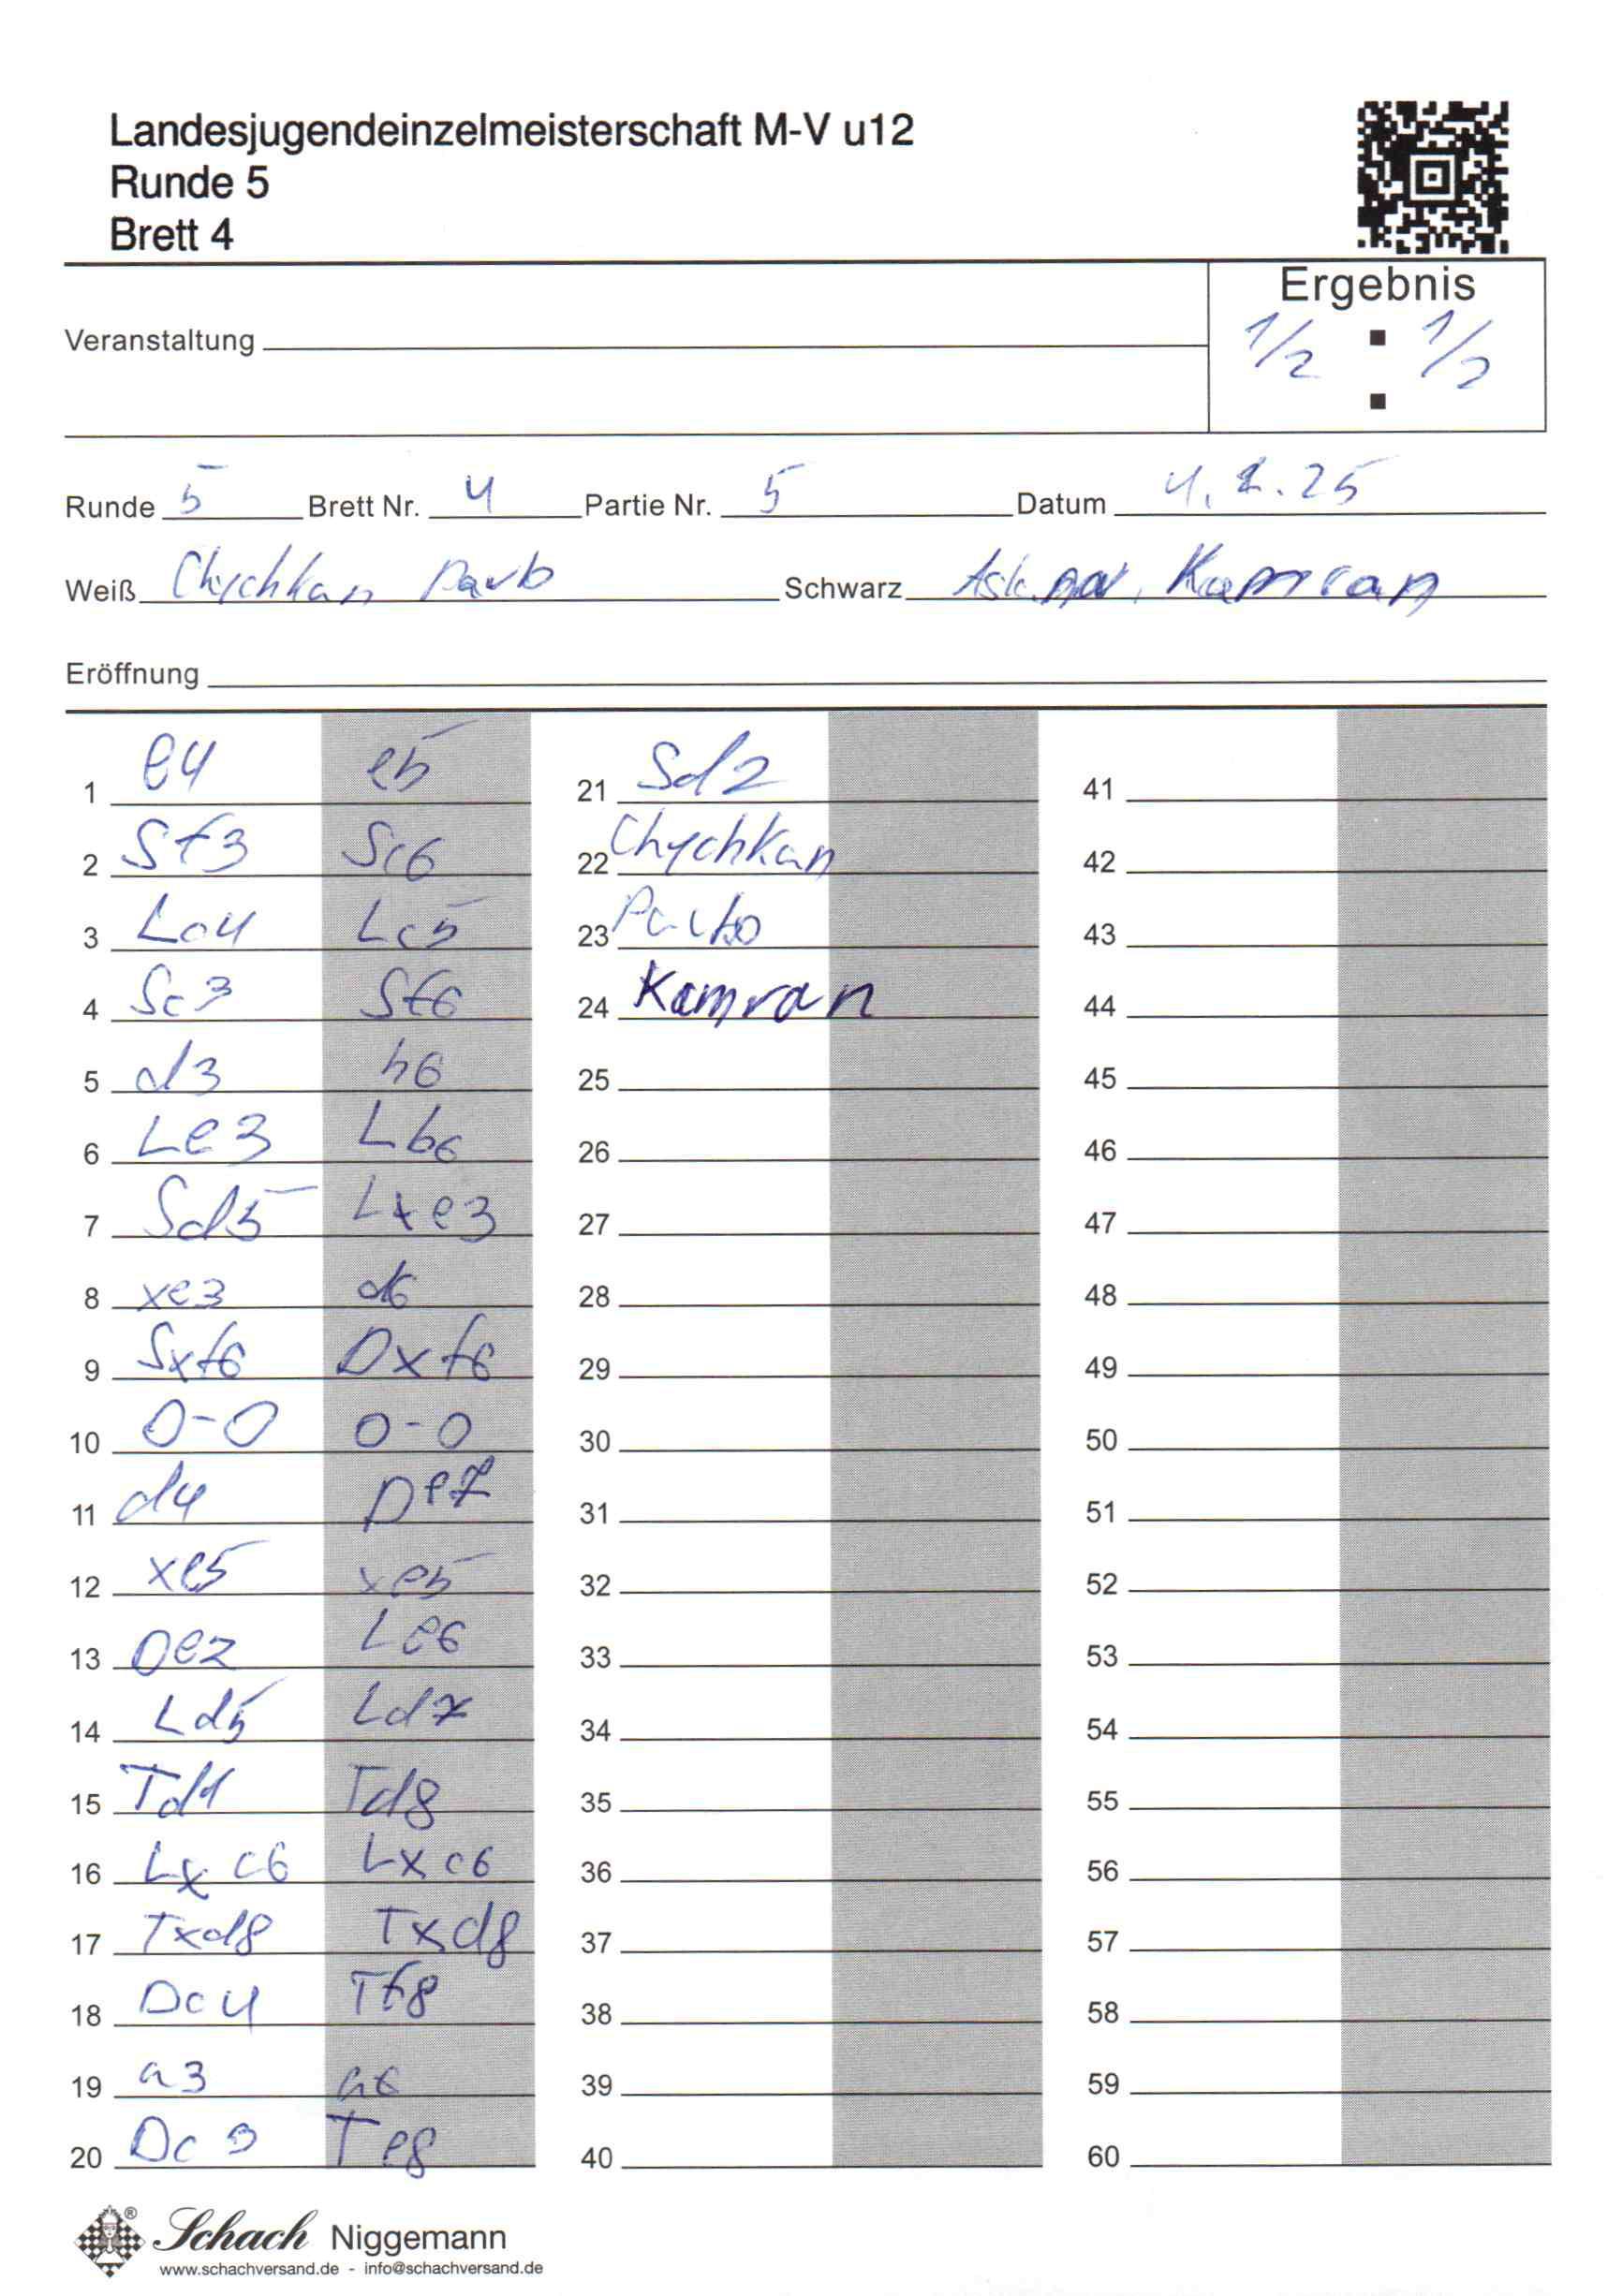 Landesjugendeinzelmeisterschaft M-V u12
Runde 5
Brett 4
Ergebnis
1/2 : 1/2
Veranstaltung
Runde 5 Brett Nr. 4 Partie Nr. 5 Datum 4.2.25
Weiß Chychkan Pavlo Schwarz Kamran
Eröffnung
1 e4 e5
2 Sf3 Sc6
3 Lc4 Lc5
4 Sc3 Sf6
5 d3 h6
6 Le3 Lb6
7 Sd5 Lxe3
8 xe3 d6
9 Sxf6 Dxf6
10 0-0 0-0
11 d4 De7
12 xe5 xe5
13 De2 Le6
14 Ld5 Ld7
15 Td1 Td8
16 Lxc6 Lxc6
17 Txd8 Txd8
18 Dc4 Tf8
19 a3 a6
20 Dc3 Te8
21 Sd2
22 Chychkan
23 Pavlo
24 Kamran
25
26
27
28
29
30
31
32
33
34
35
36
37
38
39
40
41
42
43
44
45
46
47
48
49
50
51
52
53
54
55
56
57
58
59
60
Schach Niggemann
www.schachversand.de - info@schachversand.de